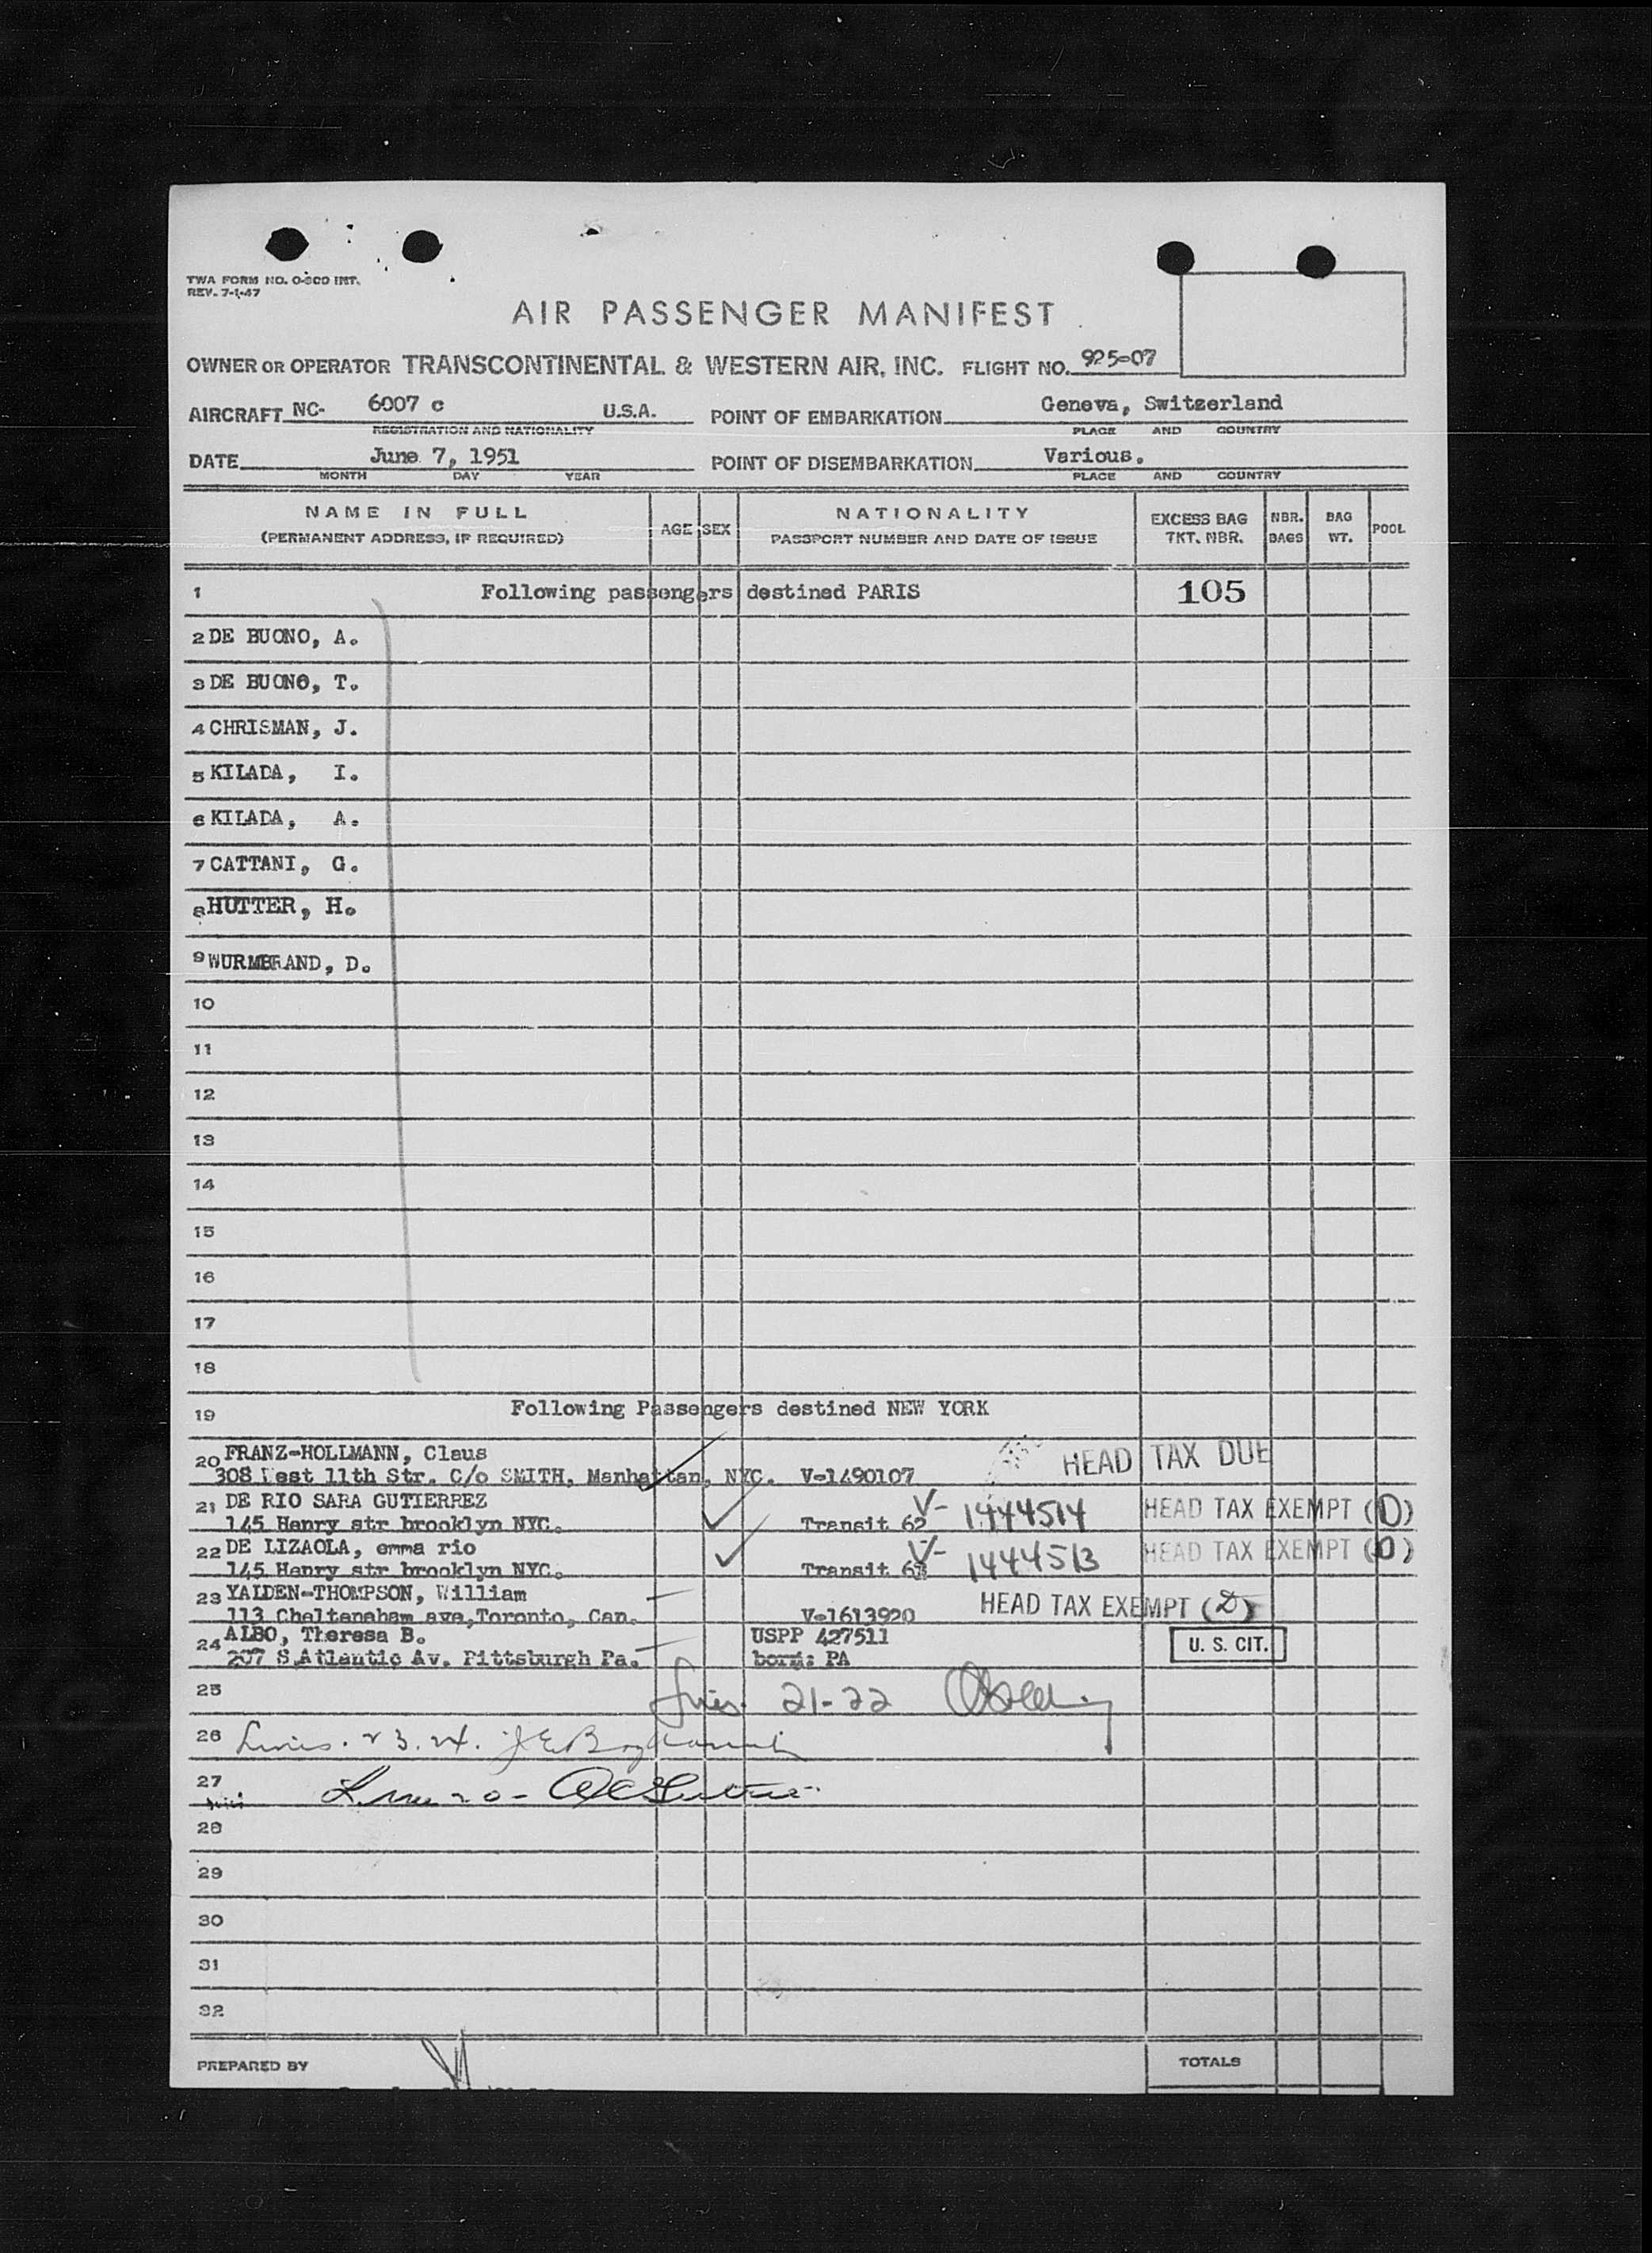 TWA FORM NO. O-300 INT.
REV. 7-1-47
AIR PASSENGER MANIFEST
OWNER OR OPERATOR TRANSCONTINENTAL & WESTERN AIR, INC. FLIGHT NO. 925-07
AIRCRAFT NC- 6007 c U.S.A. POINT OF EMBARKATION Geneva, Switzerland
REGISTRATION AND NATIONALITY PLACE AND COUNTRY
DATE June 7, 1951 POINT OF DISEMBARKATION Various.
MONTH DAY YEAR PLACE AND COUNTRY
NAME IN FULL AGE SEX NATIONALITY EXCESS BAG NBR. BAG POOL
(PERMANENT ADDRESS, IF REQUIRED) PASSPORT NUMBER AND DATE OF ISSUE TKT. NBR. BAGS WT.
1 Following passengers destined PARIS 105
2 DE BUONO, A.
3 DE BUONO, T.
4 CHRISMAN, J.
5 KILADA, I.
6 KILADA, A.
7 CATTANI, G.
8 HUTTER, H.
9 WURMBRAND, D.
10
11
12
13
14
15
16
17
18
19 Following Passengers destined NEW YORK
20 FRANZ-HOLLMANN, Claus HEAD TAX DUE
308 West 11th Str. C/o SMITH, Manhattan, NYC. V-1490107
21 DE RIO SARA GUTIERREZ V- 1444514 HEAD TAX EXEMPT (D)
145 Henry str brooklyn NYC. Transit 62
22 DE LIZAOLA, emma rio V- 1444513 HEAD TAX EXEMPT (D)
145 Henry str brooklyn NYC. Transit 63
23 YALDEN-THOMPSON, William HEAD TAX EXEMPT (D)
113 Cheltenaham ave, Toronto, Can. V-1613920
24 ALBO, Theresa B. USPP 427511 U. S. CIT.
207 S.Atlantic Av. Pittsburgh Pa. born: PA
25 21-22
26 Lines. 23.24.
27
28
29
30
31
32
PREPARED BY TOTALS